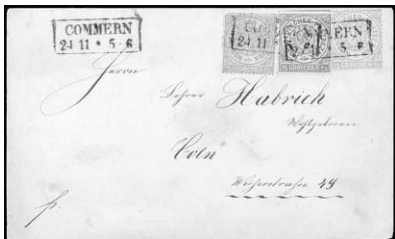 COMMERN
24 11 * 5-6
Herrn
Lehrer Habrich
Wohlgeboren
Cöln
Weiherstrasse 49
fr.